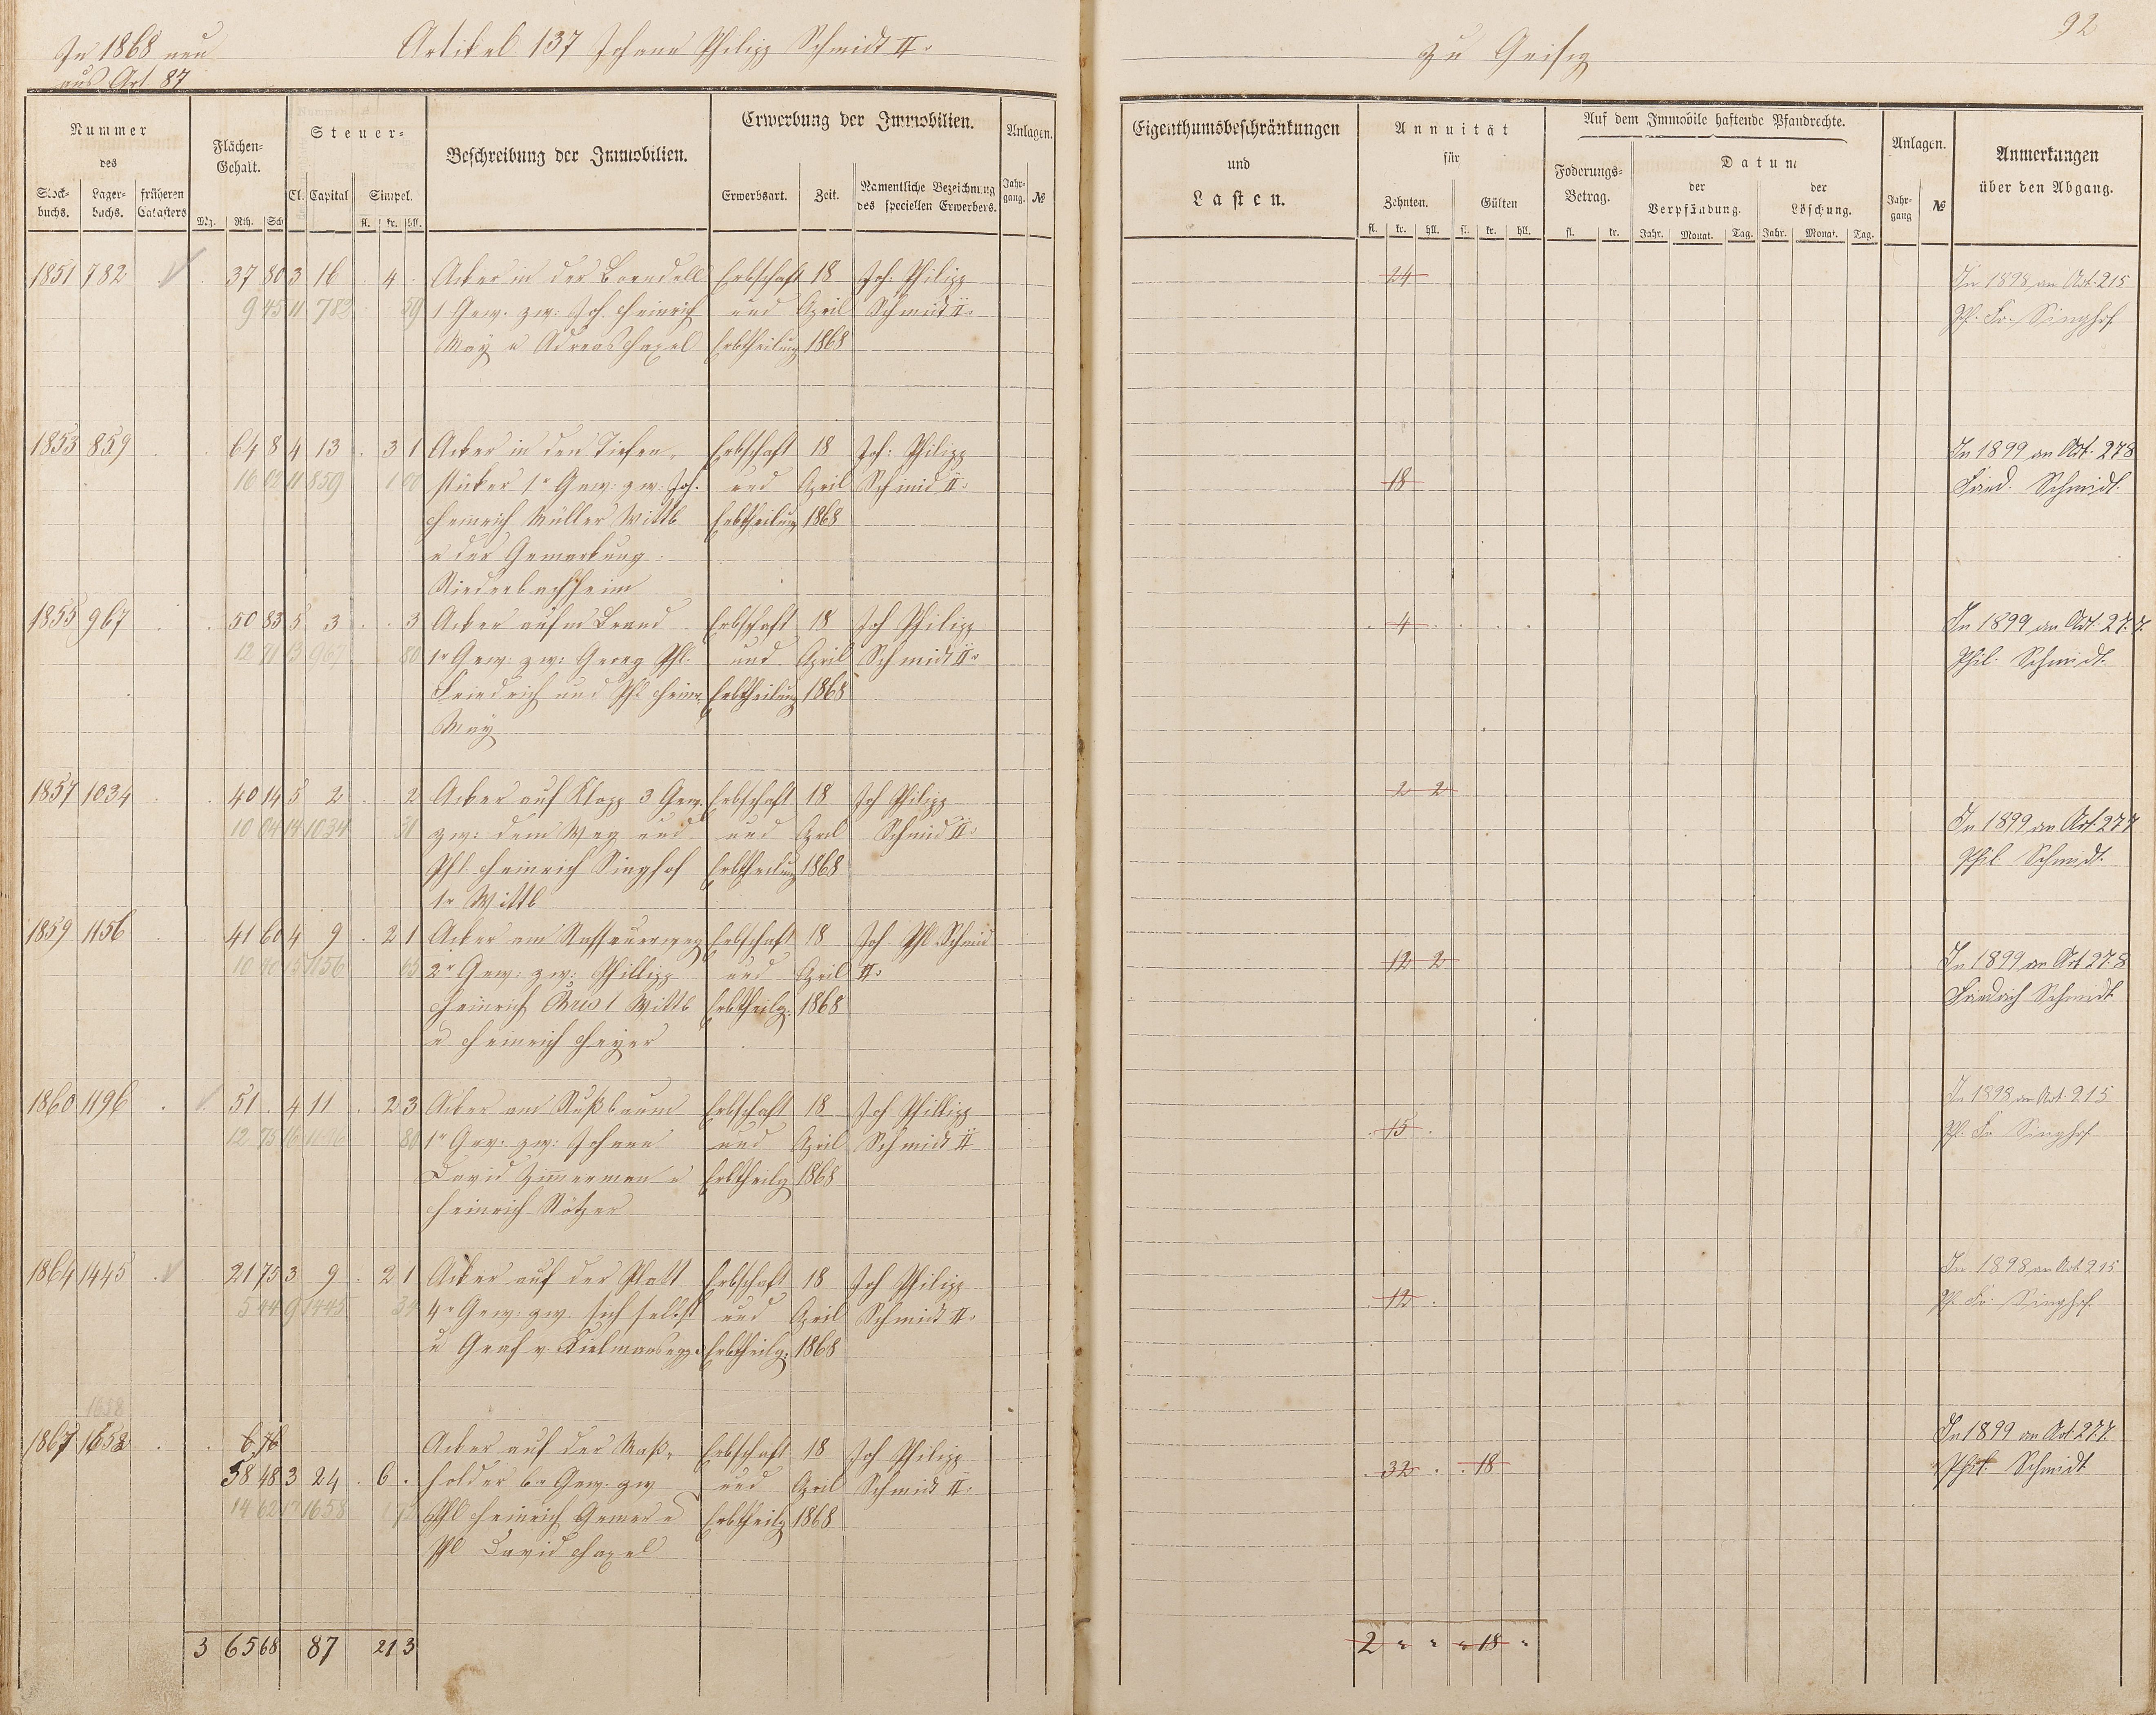 In 1868 neu
aus Art. 87
Artikel 137 Johann Philipp Schmidt II.
zu Geisig
92
Nummer
des
Stock-
buchs.
Lager-
buchs.
früheren
Catasters
Flächen-
Gehalt.
Mg. Rth. Sch
Steuer-
Cl. Capital Simpel.
fl. kr. hll.
Beschreibung der Immobilien.
Erwerbung der Immobilien.
Erwerbsart. Zeit.
Namentliche Bezeichnung
des speciellen Erwerbers.
Anlagen.
Jahr-
gang. №
Eigenthumsbeschränkungen
und
Lasten.
Annuität
für
Zehnten. Gülten
fl. kr. hll. fl. kr. hll.
Auf dem Immobile haftende Pfandrechte.
Foderungs-
Betrag.
fl. kr.
Datum
der
Verpfändung.
der
Löschung.
Jahr. Monat. Tag. Jahr. Monat. Tag.
Anlagen.
Jahr-
gang №
Anmerkungen
über den Abgang.
1851 782 37 80 3 16 . 4 . Acker in der Borndell Erbschaft 18 Joh: Philipp 24 In 1898 an Art. 215
9 45 11 782 59 1 Gew. zw: Joh. Heinrich und April Schmidt II. Ph. Fr. Singhof
May u Adreas Haxel Erbtheilung 1868
1853 859 64 8 4 13 . 3 1 Acker in den Tiefen- Erbschaft 18 Joh: Philipp In 1899 an Art. 278
16 02 11 859 1 00 stücker 1r Gew: zw: Joh. und April Schmid II. 18 Fried. Schmidt.
Heinrich Müller Wittb Erbtheilung 1868
u der Gemarkung
Niederbachheim
1855 967 50 83 5 3 . . 3 Acker aufm Brand Erbschaft 18 Joh Philipp 4 In 1899 an Art. 277.
12 71 13 967 80 1r Gew: zw: Georg Phl. und April Schmidt II. Phil. Schmidt.
Friedrich und Phl Heinr. Erbtheilung 1868
May
1857 1034 40 14 5 2 . . 2 Acker auf Klopp 3 Gew. Erbschaft 18 Joh Philipp 2 2
10 04 14 1034 31 zw: dem Weg und und April Schmid II. In 1899 an Art. 277
Phl. Heinrich Singhof Erbtheilung 1868 Phil. Schmidt.
1r Wittb
1859 1156 41 60 4 9 . 2 1 Acker am Nassauerweg Erbschaft 18 Joh Phl Schmid
10 40 15 1156 65 2r Gew: zw: Phillipp und April II. 12 2 In 1899 an Art 278
Heinrich Krist Wittb Erbtheilg: 1868 Friedrich Schmidt
u Heinrich Heyer
1860 1196 51 . 4 11 . 2 3 Acker am Nußbaum Erbschaft 18 Joh Phillipp In 1898 an Art. 215
12 75 16 1196 80 1r Gew. zw: Johann und April Schmidt II 15 Ph. Fr Singhof
David Zimmerman u Erbtheilg 1868
Heinrich Nötzer
1864 1445 21 75 3 9 . 2 1 Acker auf der Platt Erbschaft 18 Joh Philipp In 1898 an Art 215
5 44 9 1445 34 4r Gew: zw. sich selbst und April Schmidt II. 12 Ph. Fr. Singhof.
u Graf v. Kielmansegge Erbtheilg: 1868
1658
1867 1652 6 76 Acker auf der Maß- Erbschaft 18 Joh Philipp In 1899 an Art 277.
58 48 3 24 . 6 . holder 6r Gew. zw und April Schmidt II. 32 18 Phil. Schmidt
14 62 17 1658 1 72 Phl Heinrich Gemer u Erbtheilg 1868
Phl David Haxel
3 65 68 87 21 3 2 " " " 18 "